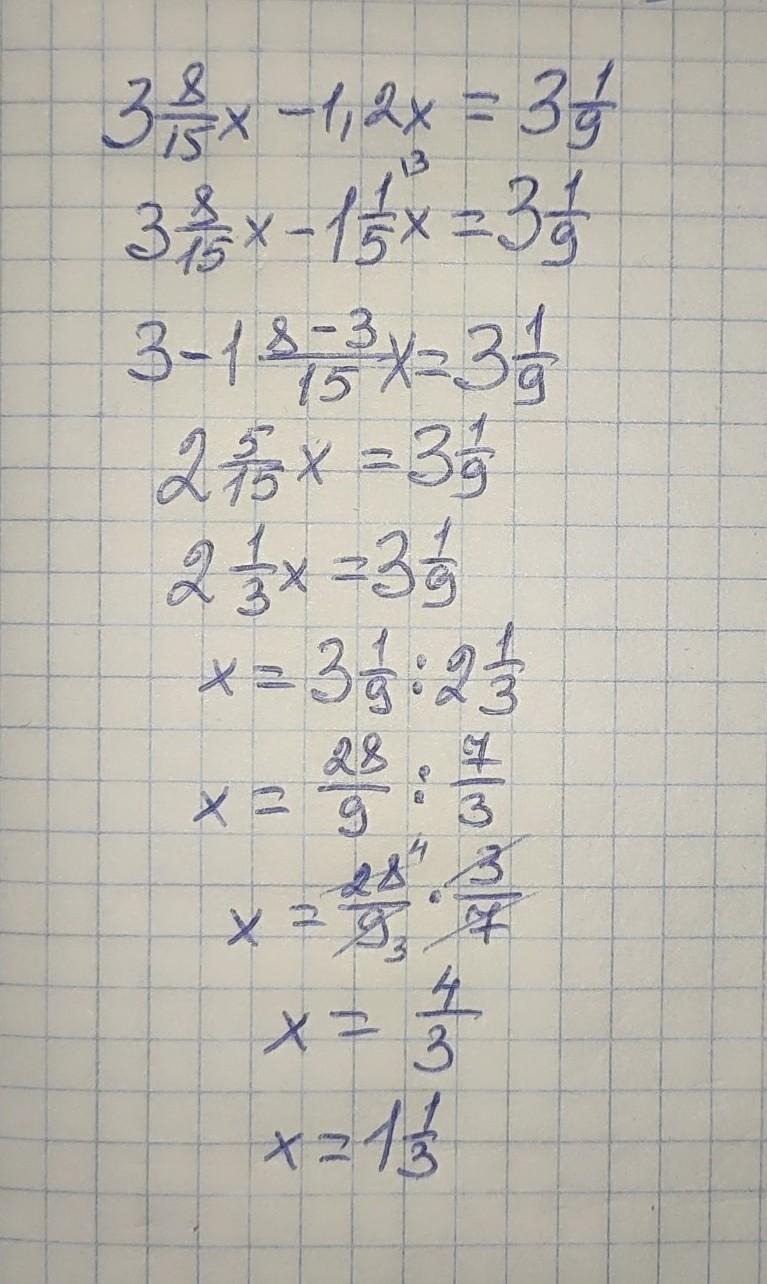 3 8/15 x - 1,2x = 3 1/9
3 8/15 x - 1 1/5 ⁽³ x = 3 1/9
3 - 1 (8-3)/15 x = 3 1/9
2 5/15 x = 3 1/9
2 1/3 x = 3 1/9
x = 3 1/9 : 2 1/3
x = 28/9 : 7/3
x = 28⁴/9₃ · 3/7
x = 4/3
x = 1 1/3